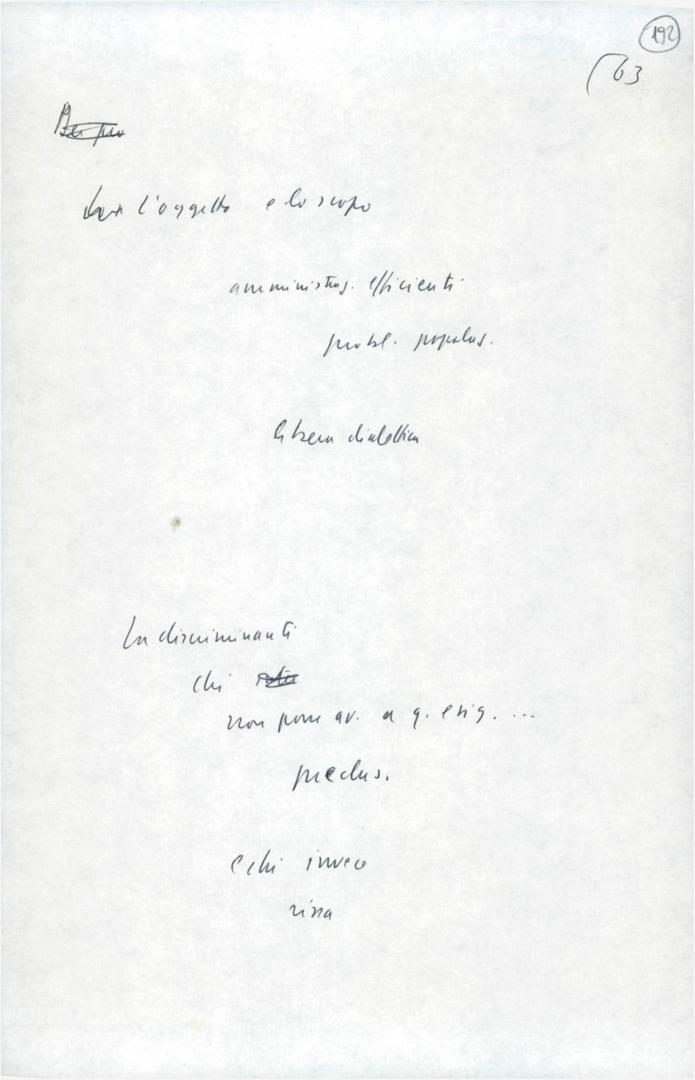 192
63
l'oggetto e lo scopo
amministraz. efficienti
probl. popolas.
libera dialettica
La discriminanti
chi
non pone av. a q. esig. ...
preclus.
e chi invece
rissa